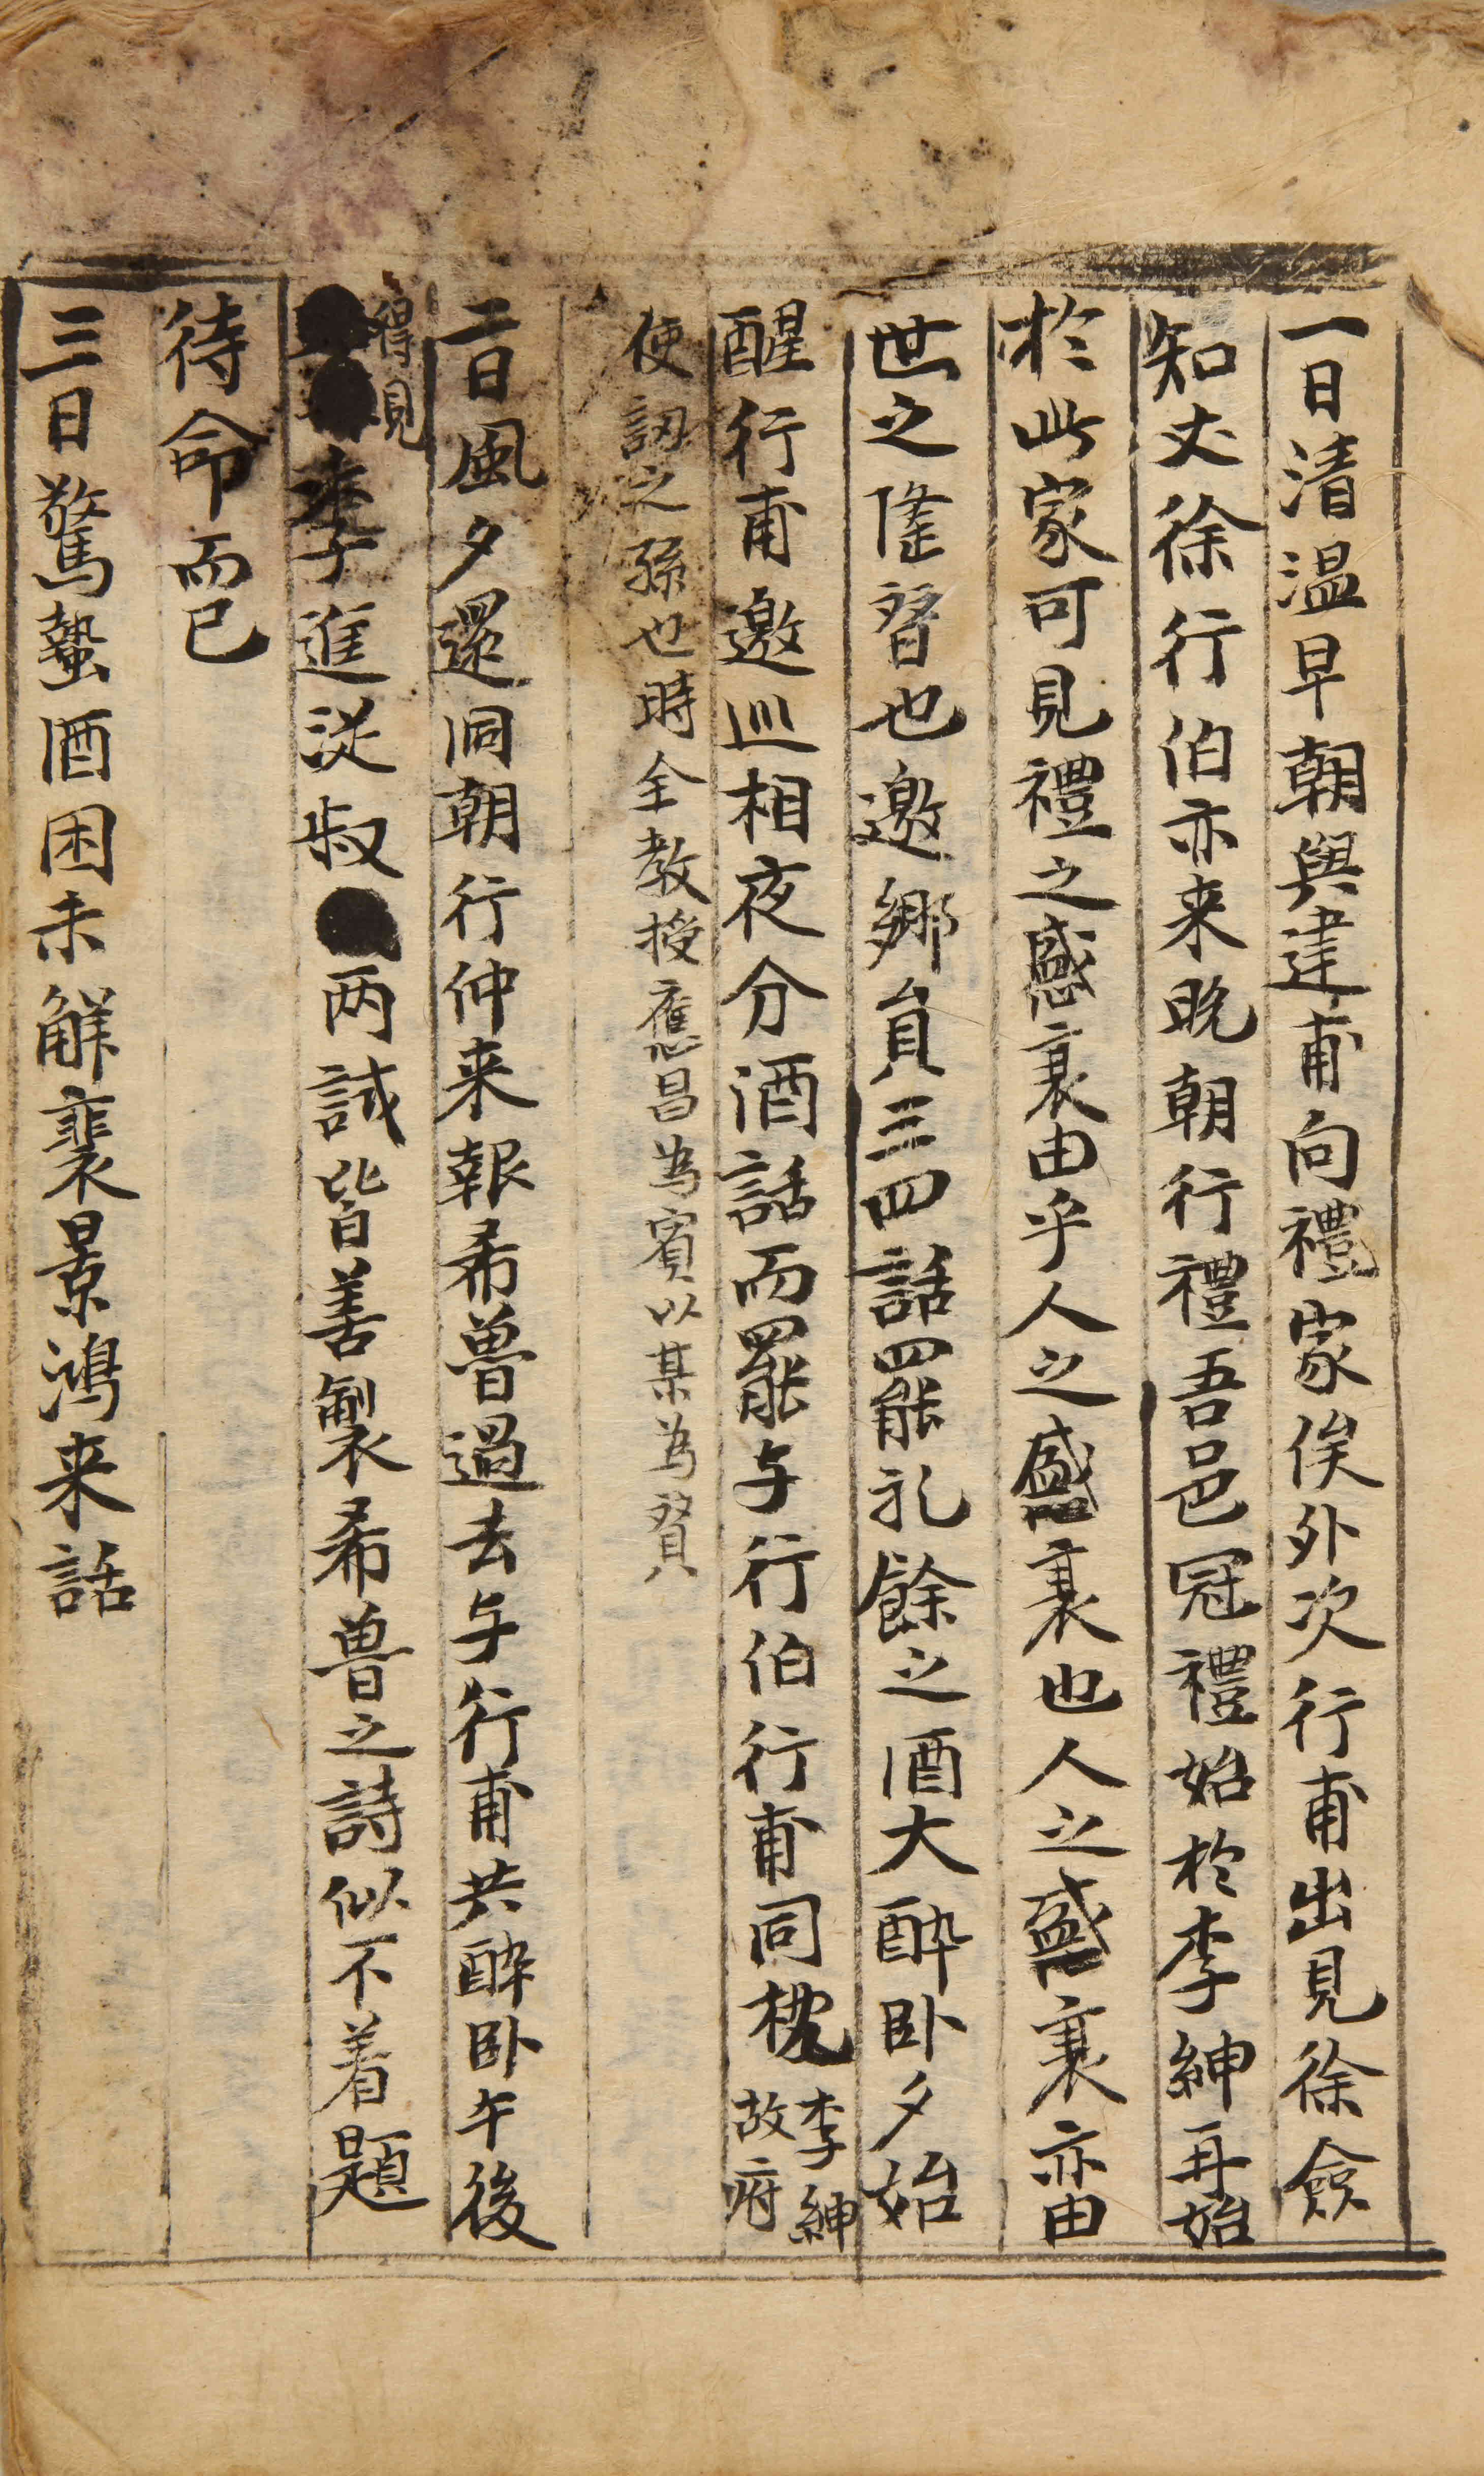 一日清温早朝與建甫向禮家俟外次行甫出見徐僉
知丈徐行伯亦来晚朝行禮吾邑冠禮始於李紳再始
於此家可見禮之盛衰由乎人之盛衰也人之盛衰亦由
世之隆替也邀鄕員三四話罷礼餘之酒大酔卧夕始
醒行甫邀巡相夜分酒話而罷与行伯行甫同枕李紳
故府
使訒之孫也時全教授應昌為賓以某為贊
二日風夕還洞朝行仲来報希魯過去与行甫共酔卧午後
得見
李進從叔两試皆善製希魯之詩似不着題
待命而已
三日驚蟄酒困未解裴景鴻来話